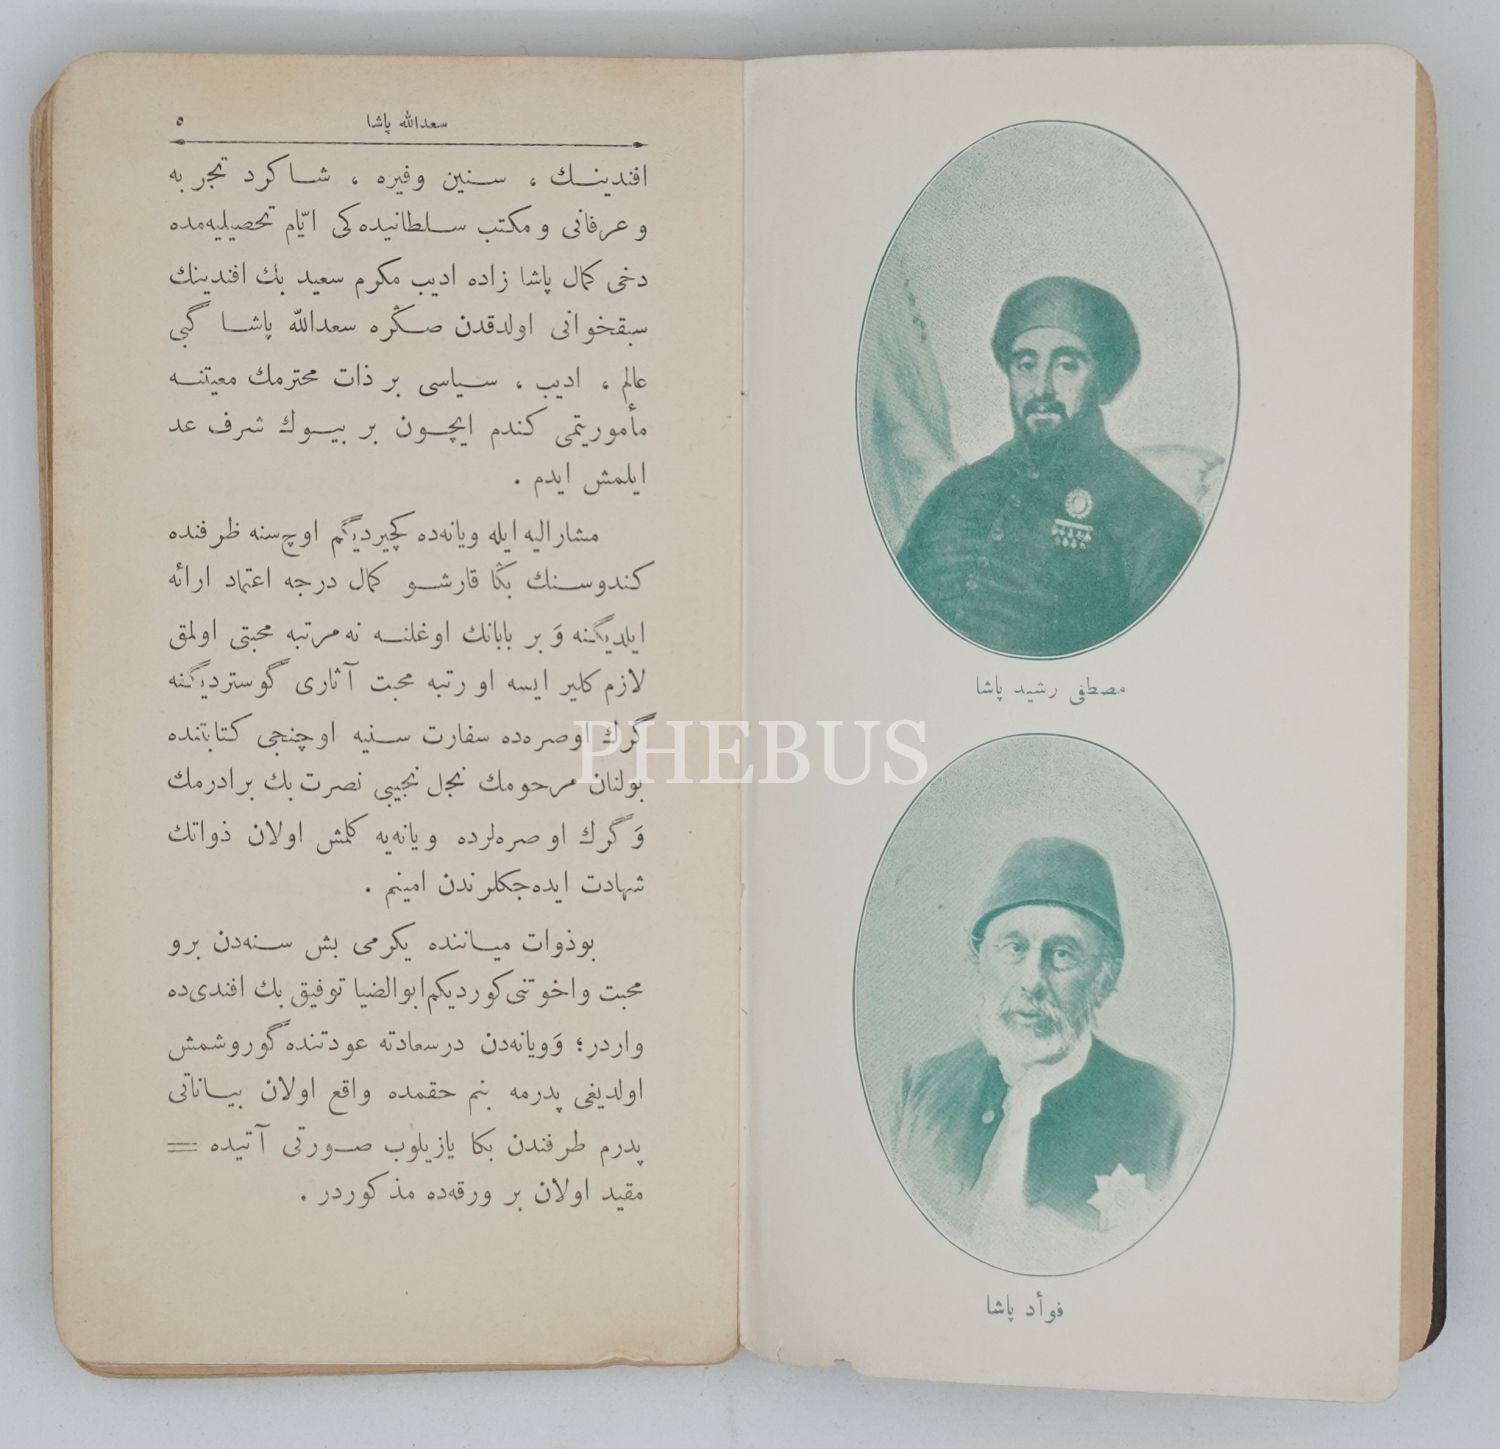 سعدالله پاشا
٥
افندينك ، سنين وفيره ، شاكرد تجربه
و عرفانى و مكتب سلطانيده‌كى ايّام تحصيليه‌مده
دخى كمال پاشا زاده اديب مكرم سعيد بك افندينك
سبقخوانى اولدقدن صڭره سعدالله پاشا گبى
عالم ، اديب ، سياسى بر ذات محترمك معيتنه
مأموريتمى كندم ايچون بر بيوك شرف عد
ايلمش ايدم .
مشاراليه ايله ويانه‌ده كچيرديگم اوچ سنه ظرفنده
كندوسنك بڭا قارشو كمال درجه اعتماد ارائه
ايلديگنه وَ بر بابانك اوغلنه نه مرتبه محبتى اولمق
لازم كلير ايسه او رتبه محبت آثارى گوسترديگنه
گرك اوصره‌ده سفارت سنيه اوچنجى كتابتنده
بولنان مرحومك نجل نجيبى نصرت بك برادرمك
وَ گرك اوصره‌لرده ويانه‌يه كلمش اولان ذواتك
شهادت ايده‌جكلرندن امينم .
بوذوات مياننده يكرمى بش سنه‌دن برو
محبت واخوتنى كورديكم ابوالضيا توفيق بك افندى‌ده
واردر؛ وَويانه‌دن درسعادته عودتنده گوروشمش
اولديغى پدرمه بنم حقمده واقع اولان بياناتى
پدرم طرفندن بكا يازيلوب صورتى آتيده =
مقيد اولان بر ورقه‌ده مذكوردر .
مصطفى رشيد پاشا
فوأد پاشا
PHEBUS